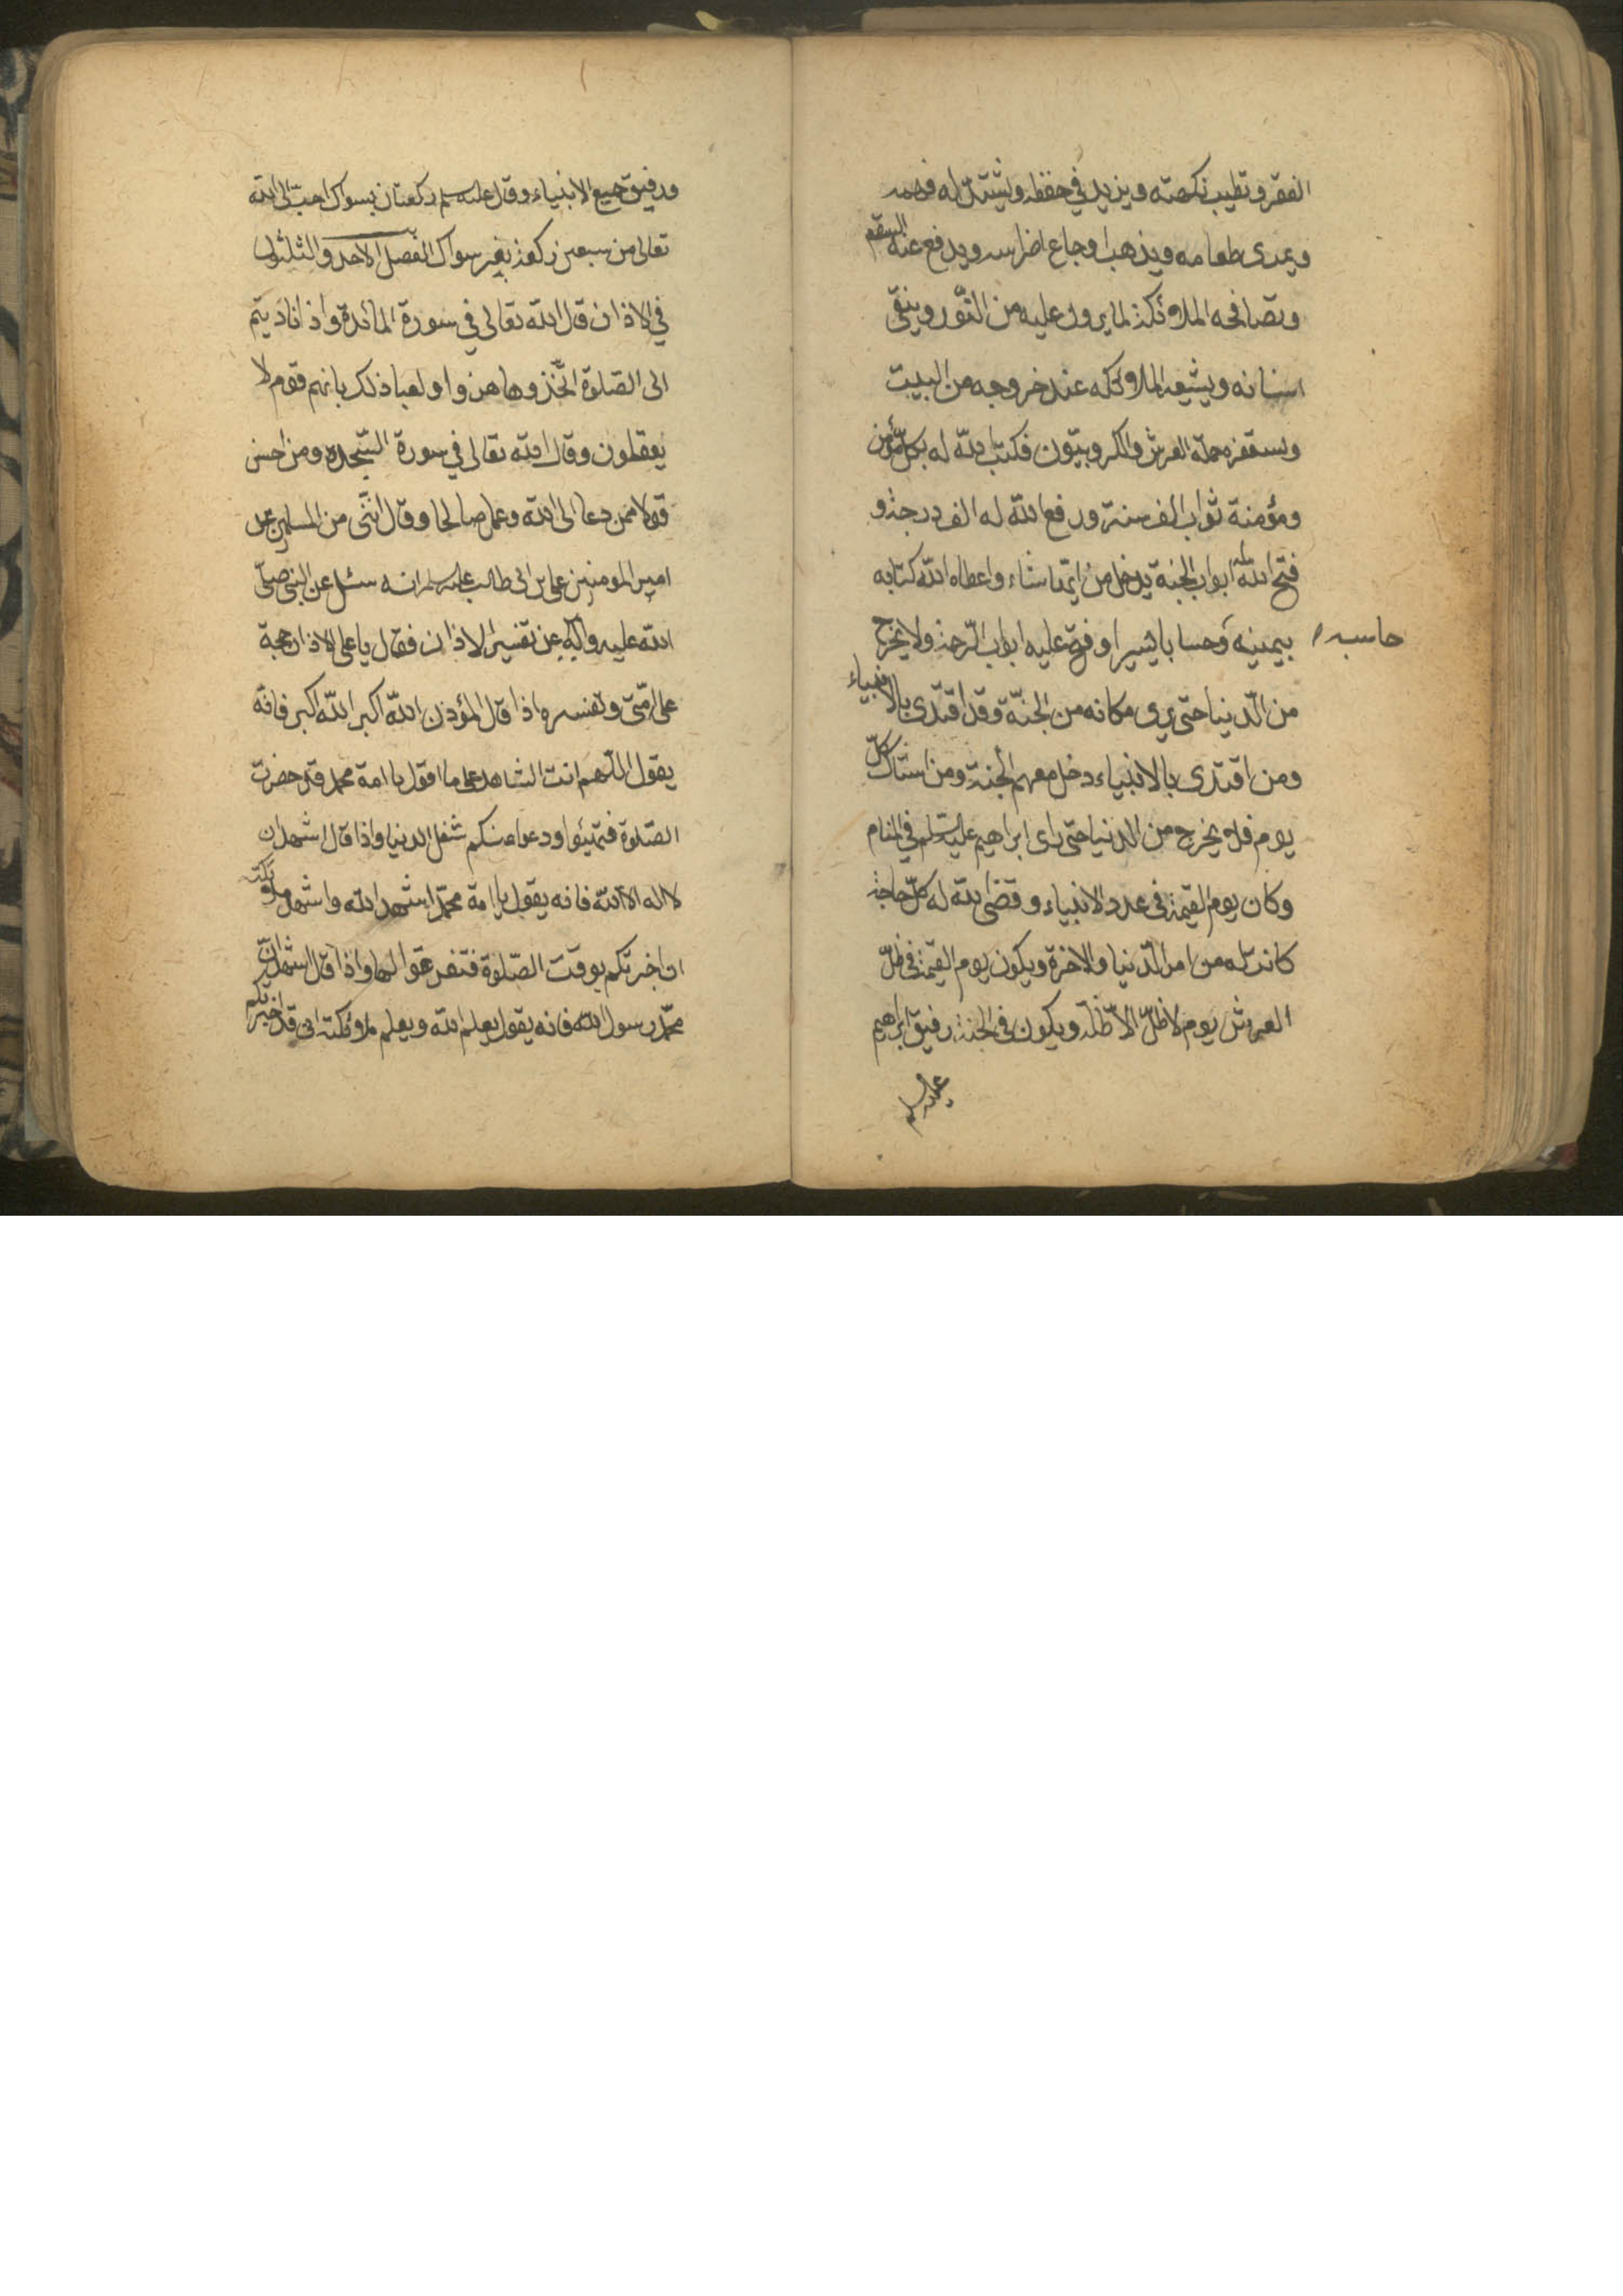 الفقر وتطيب نكهته ويزيد في حفظه ويشتد له فهمه
ويمرى طعامه ويذهب اوجاع اضراسه ويدفع عنه السقم
وتصافحه الملائكة لما يرون عليه من النّور وينقى
اسنانه ويشيعه الملائكة عند خروجه من البيت
ويستغفره حملة العرش والكروبيّون فكتب الله له بكلّ مؤمن
ومؤمنة ثواب الف سنة ورفع الله له الف درجة و
فتح الله له ابواب الجنة يدخل من ايّها شاء واعطاه الله كتابه
بيمينه وحسابا يسيرا وفتح عليه ابواب الرّحمة ولا يخرج
حاسبه
من الدّنيا حتى يرى مكانه من الجنّة وقد اقتدى بالانبياء
ومن اقتدى بالانبياء دخل معهم الجنة ومن استاك كلّ
يوم فلا يخرج من الدنيا حتى راى ابراهيم عليه السلم في المنام
وكان يوم القيمة في عدد الانبياء وقضى الله له كلّ حاجة
كانت له من امر الدّنيا والاخرة ويكون يوم القيمة في ظلّ
العرش يوم لا ظلّ الا ظلّه ويكون في الجنة رفيق ابراهيم
عليه السلم
ورفيق جميع الانبياء وقال عليه السلم ركعتان بسواك احبّ الى الله
تعالى من سبعين ركعة بغير سواك الفصل الاحد والثلثون
في الاذان قال الله تعالى في سورة المائدة واذا ناديتم
الى الصّلوة اتّخذوها هزوا ولعبا ذلك بانهم قوم لا
يعقلون وقال الله تعالى في سورة السّجدة ومن احسن
قولا ممن دعا الى الله وعمل صالحا وقال انّنى من المسلمين عن
امير المومنين على بن ابى طالب عليه السلم انه سئل عن النبى صلّى
الله عليه وآله عن تفسير الاذان فقال يا على الاذان حجة
على امّتى وتفسيره اذا قال المؤذن الله اكبر الله اكبر فانّه
يقول اللّهم انت الشاهد على ما اقول يا امة محمد قد حضرت
الصّلوة فتهيّئوا ودعوا عنكم شغل الدنيا واذا قال اشهد ان
لا اله الا الله فانه يقول يا امة محمّد اشهد الله واشهد ملائكته
انى اخبرتكم بوقت الصّلوة فتفرغوا لها واذا قال اشهد انّ
محمّد رسول الله فانه يقول يعلم الله ويعلم ملائكته انى قد اخبرتكم